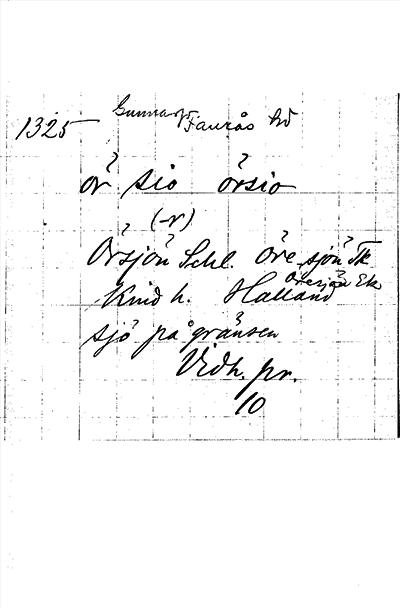 1325 Gunnarp Faurås hd
ör sio örsio
(-r)
Örsjön Schl. Öre sjön Tk
Kind h. Halland Öresjön Ek
sjö på gränsen
Vidh. pr.
10